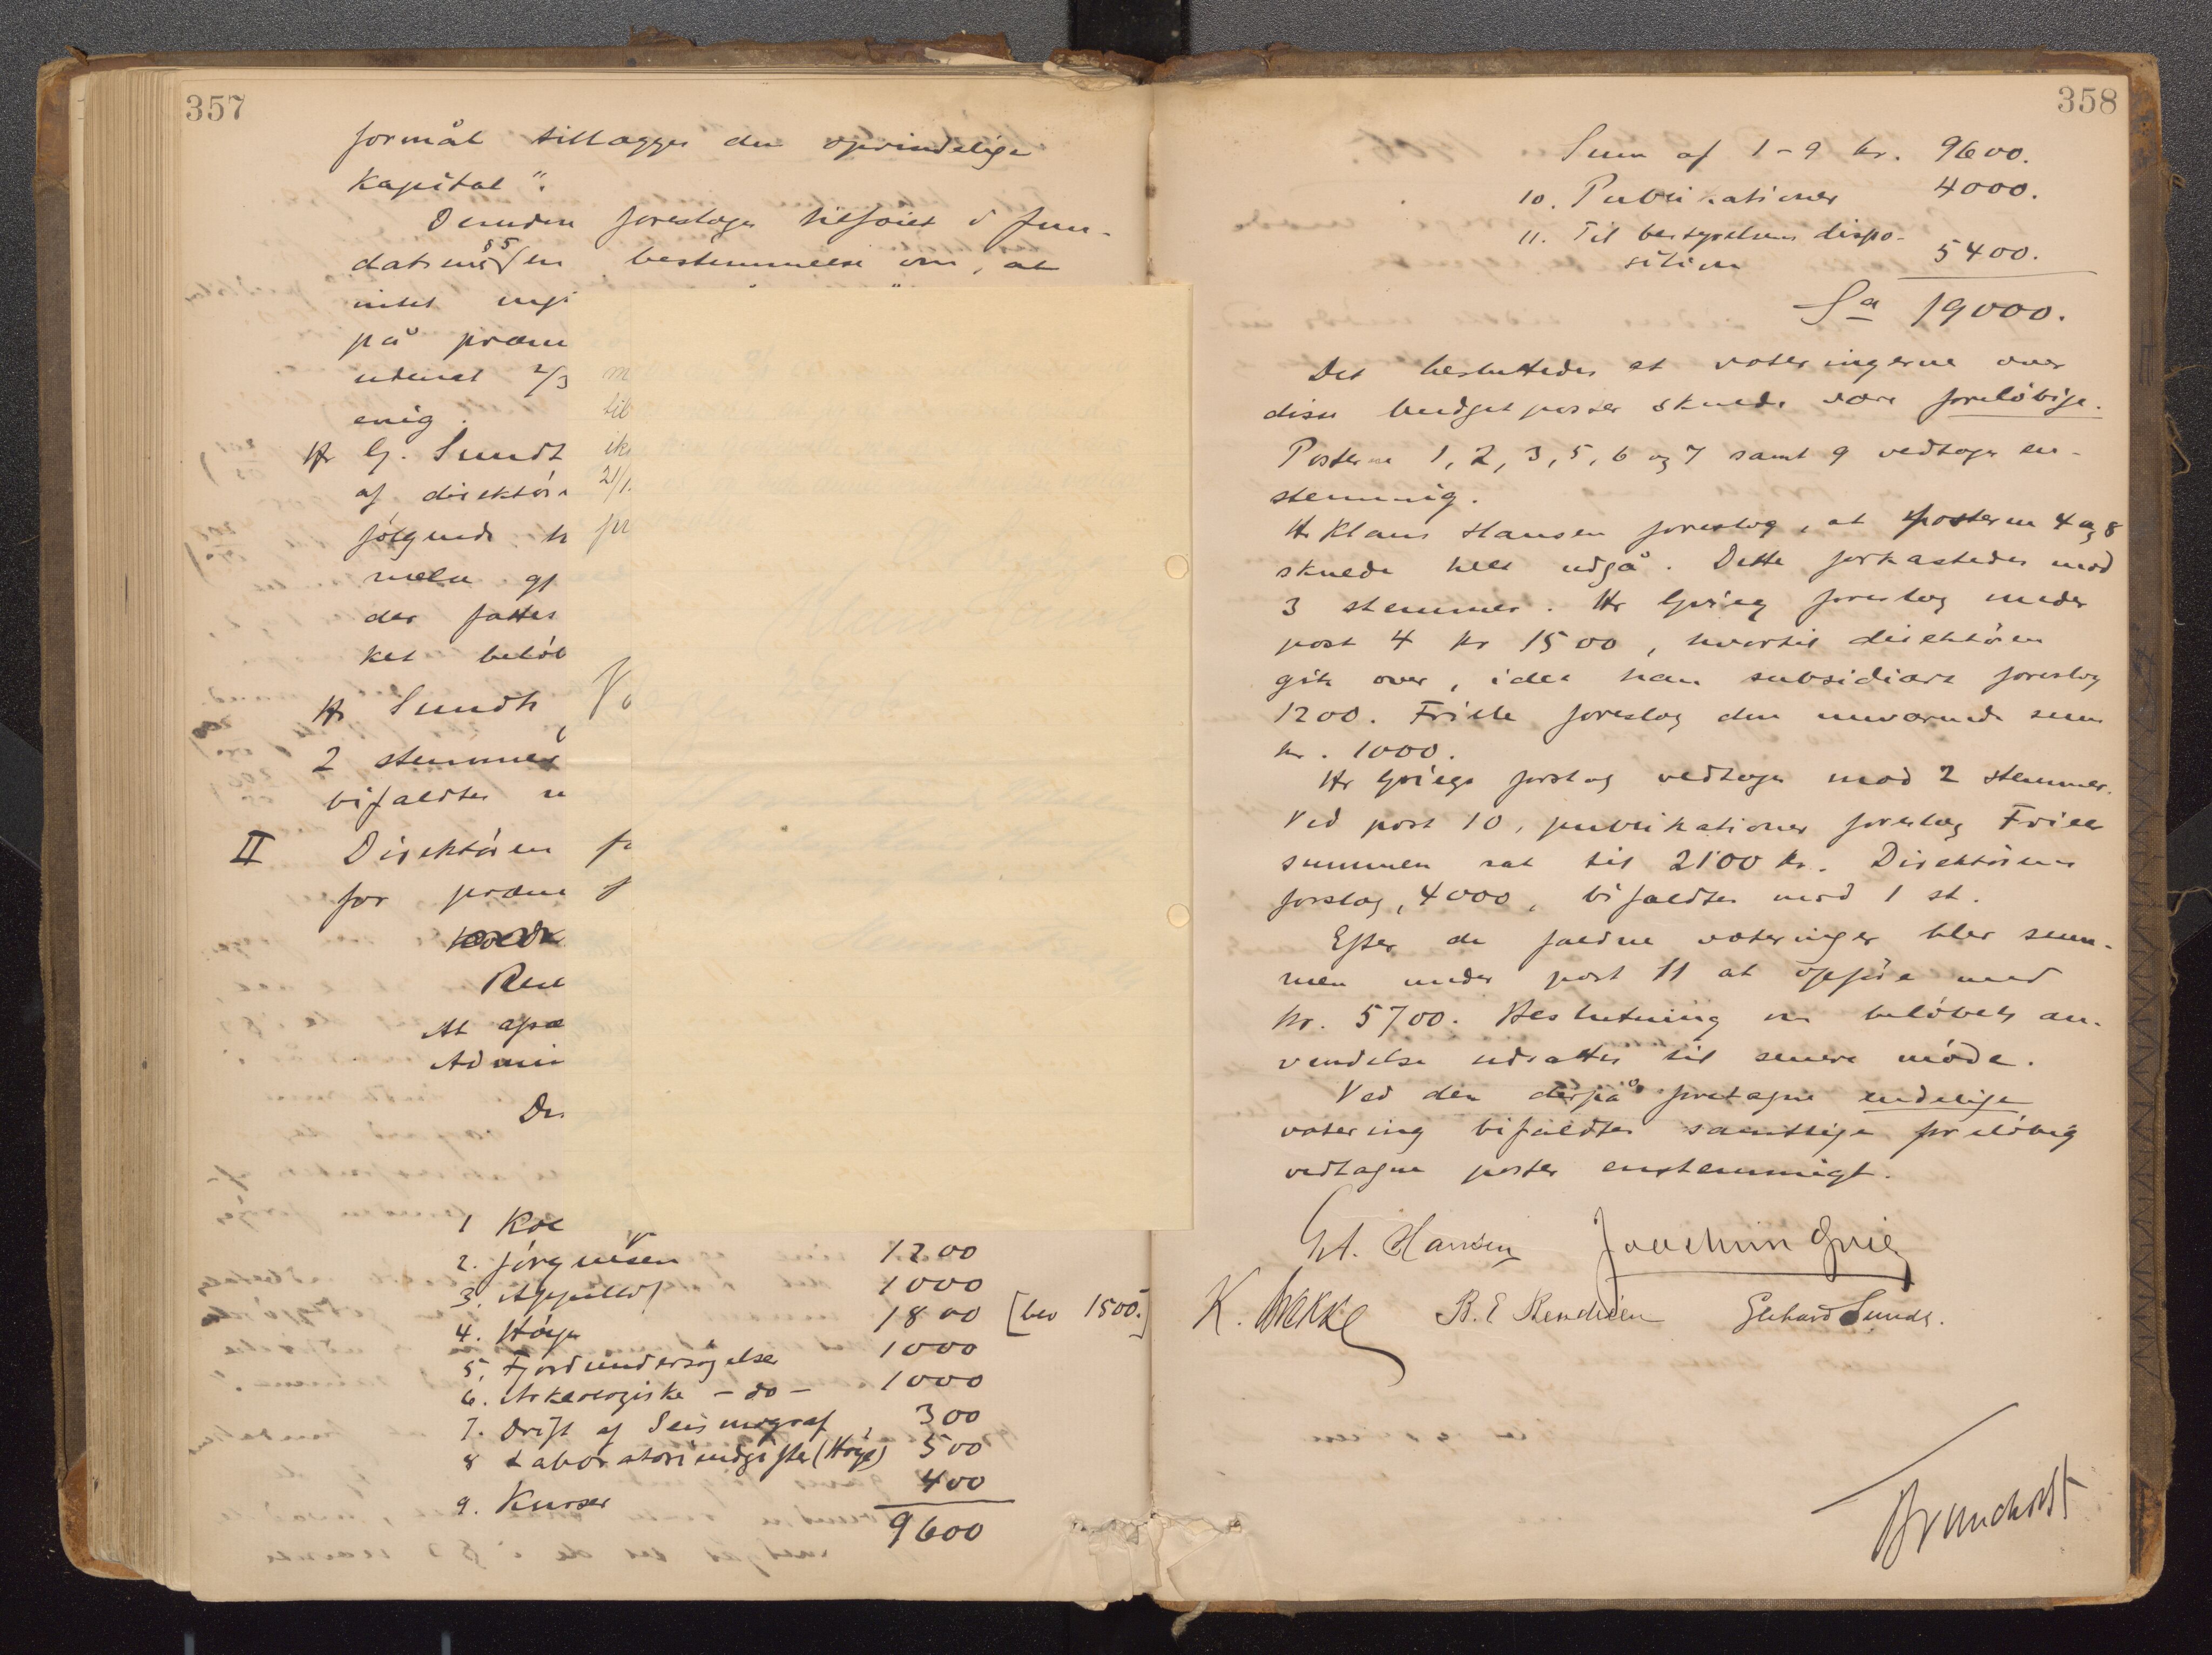 357
formål tillægges den oprindelige
Kapital".
Desuden foresloges tilføiet i fun-
datsens § 5 en bestemmelse om, at
intet
på præm
uden at 2/3
enig.
Hr G. Sundt
af direktør
følgende
der fattes
ket beløb
Hr Sundts
2 stemmer
bifaldtes
II Direktøren
for præm
Admin
1
2. Jörgensen 1200
3. Appellöf 1000
4. Høye 1800 [bev 1500.]
5. Fjordundersøgelser 1000
6. Arkæologiske - do - 1000
7. Drift af Seismograf 300
8 Laboratorieudgifter (Høye) 500
9. Kurser 400
9600
m
til
21/1.
358
Sum af 1-9 kr. 9600.
10. Publikationer 4000.
11. Til bestyrelsens dispo-
sition 5400.
Sa 19000.
Det besluttedes at voteringerne over
disse budgetposter skulde være foreløbige.
Posterne 1, 2, 3, 5, 6 og 7 samt 9 vedtoges en-
stemmig.
Hr Klaus Hansen foreslog, at posterne 4 og 8
skulde helt udgå. Dette forkastedes mod
3 stemmer. Hr Grieg foreslog under
post 4 kr 1500, hvortil direktøren
gik over, idet han subsidiært foreslog
1200. Friele foreslog den nuværende sum
kr. 1000.
Hr Griegs forslag vedtoges mod 2 stemmer.
Ved post 10, publikationer foreslog Friele
summen sat til 2100 kr. Direktørens
forslag, 4000, bifaldtes mod 1 st.
Efter de faldne voteringer blev sum-
men under post 11 at opføre med
kr. 5700. Beslutning om beløbets an-
vendelse udsattes til senere møde.
Ved den derpå foretagne endelige
votering bifaldtes samtlige foreløbig
vedtagne poster enstemmigt.
Hansen Joachim Grieg
K. Bakke B. E. Bendixen Gerhard Sundt.
Brunchorst